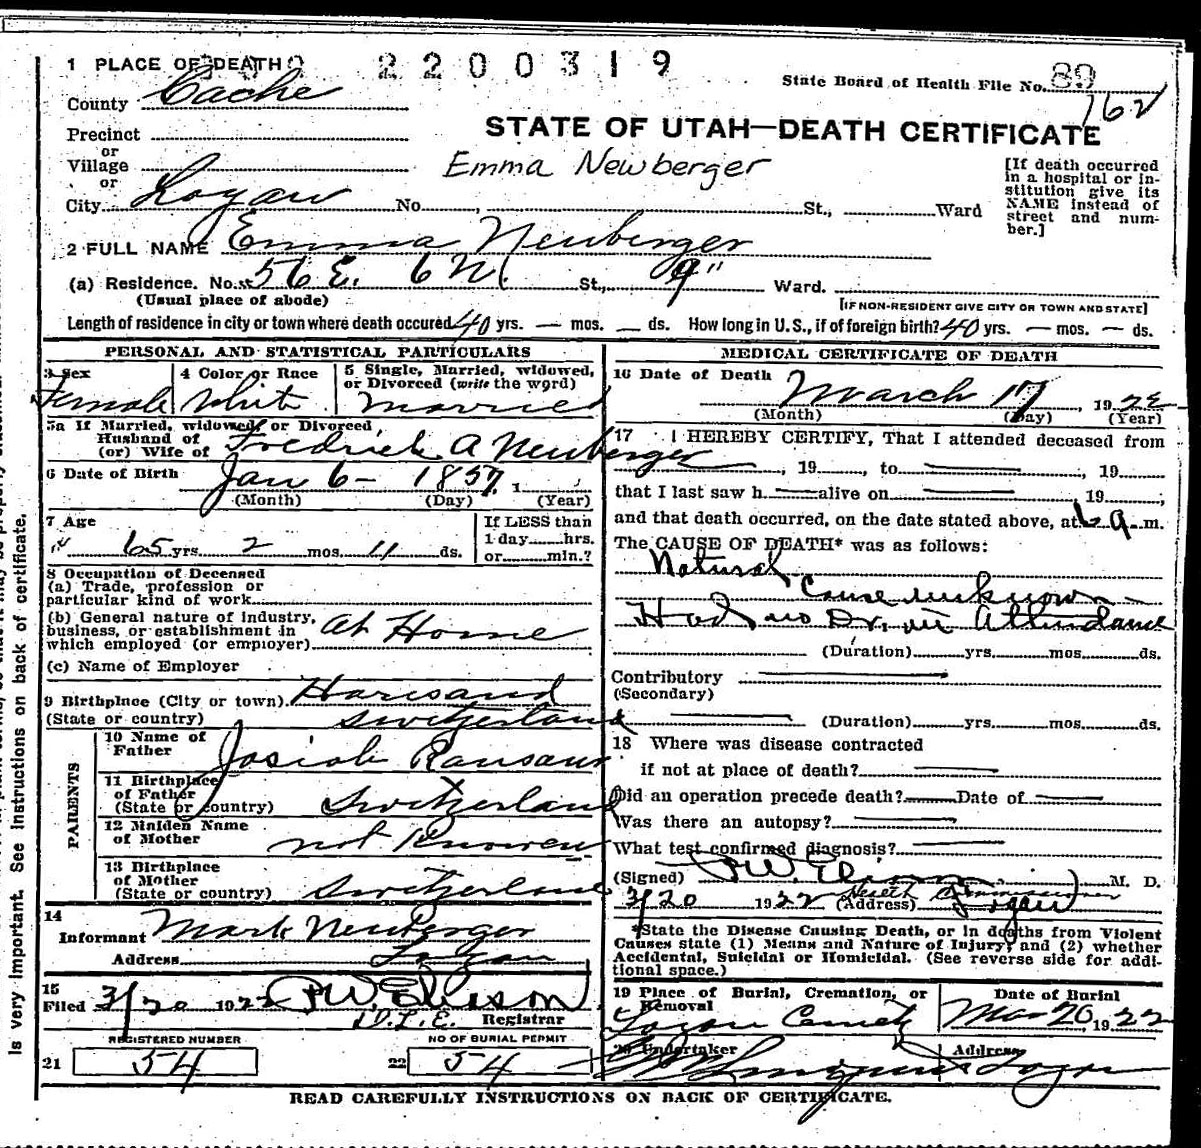 1 PLACE OF DEATH 2200319
State Board of Health File No. 89
162
County Cache
STATE OF UTAH—DEATH CERTIFICATE
Precinct
or
Village
Emma Newberger
or
City Logan No. St., Ward
[If death occurred
in a hospital or in-
stitution give its
NAME instead of
street and num-
ber.]
2 FULL NAME Emma Neuberger
(a) Residence. No. 56 E. 6 N. St., 9" Ward.
(Usual place of abode)
[IF NON-RESIDENT GIVE CITY OR TOWN AND STATE]
Length of residence in city or town where death occured 40 yrs. — mos. — ds. How long in U. S., if of foreign birth? 40 yrs. — mos. — ds.
PERSONAL AND STATISTICAL PARTICULARS
3 Sex
Female
4 Color or Race
White
5 Single, Married, widowed,
or Divorced (write the word)
Married
5a If Married, widowed, or Divorced
Husband of
(or) Wife of Fredrick A Neuberger
6 Date of Birth Jan 6 - 1857, 1
(Month) (Day) (Year)
7 Age
65 yrs. 2 mos. 11 ds.
If LESS than
1 day hrs.
or min.?
8 Occupation of Deceased
(a) Trade, profession or
particular kind of work
(b) General nature of Industry,
business, or establishment in
which employed (or employer) At Home
(c) Name of Employer
9 Birthplace (City or town)
(State or country) Switzerland
PARENTS
10 Name of
Father Josiah
11 Birthplace
of Father
(State or country) Switzerland
12 Maiden Name
of Mother not Known
13 Birthplace
of Mother
(State or country) Switzerland
14
Informant Mark Neuberger
Address Logan
15
Filed 3/20 1922
Registrar
REGISTERED NUMBER
21 54
NO OF BURIAL PERMIT
22 54
MEDICAL CERTIFICATE OF DEATH
16 Date of Death March 17, 1922
(Month) (Day) (Year)
17 I HEREBY CERTIFY, That I attended deceased from
, 19 , to , 19
that I last saw h alive on , 19 ,
and that death occurred, on the date stated above, at 6 a. m.
The CAUSE OF DEATH* was as follows:
Natural
Cause unknown —
Had no Dr. in Attendance
(Duration) yrs. mos. ds.
Contributory
(Secondary)
(Duration) yrs. mos. ds.
18 Where was disease contracted
if not at place of death?
Did an operation precede death? Date of
Was there an autopsy?
What test confirmed diagnosis?
(Signed) M. D.
3/20 1922 (Address) Logan
*State the Disease Causing Death, or in deaths from Violent
Causes state (1) Means and Nature of Injury; and (2) whether
Accidental, Suicidal or Homicidal. (See reverse side for addi-
tional space.)
19 Place of Burial, Cremation, or
Removal
Logan
Date of Burial
Mar 20, 1922
20 Undertaker
Address
Logan
READ CAREFULLY INSTRUCTIONS ON BACK OF CERTIFICATE.
is very important. See instructions on back of certificate.